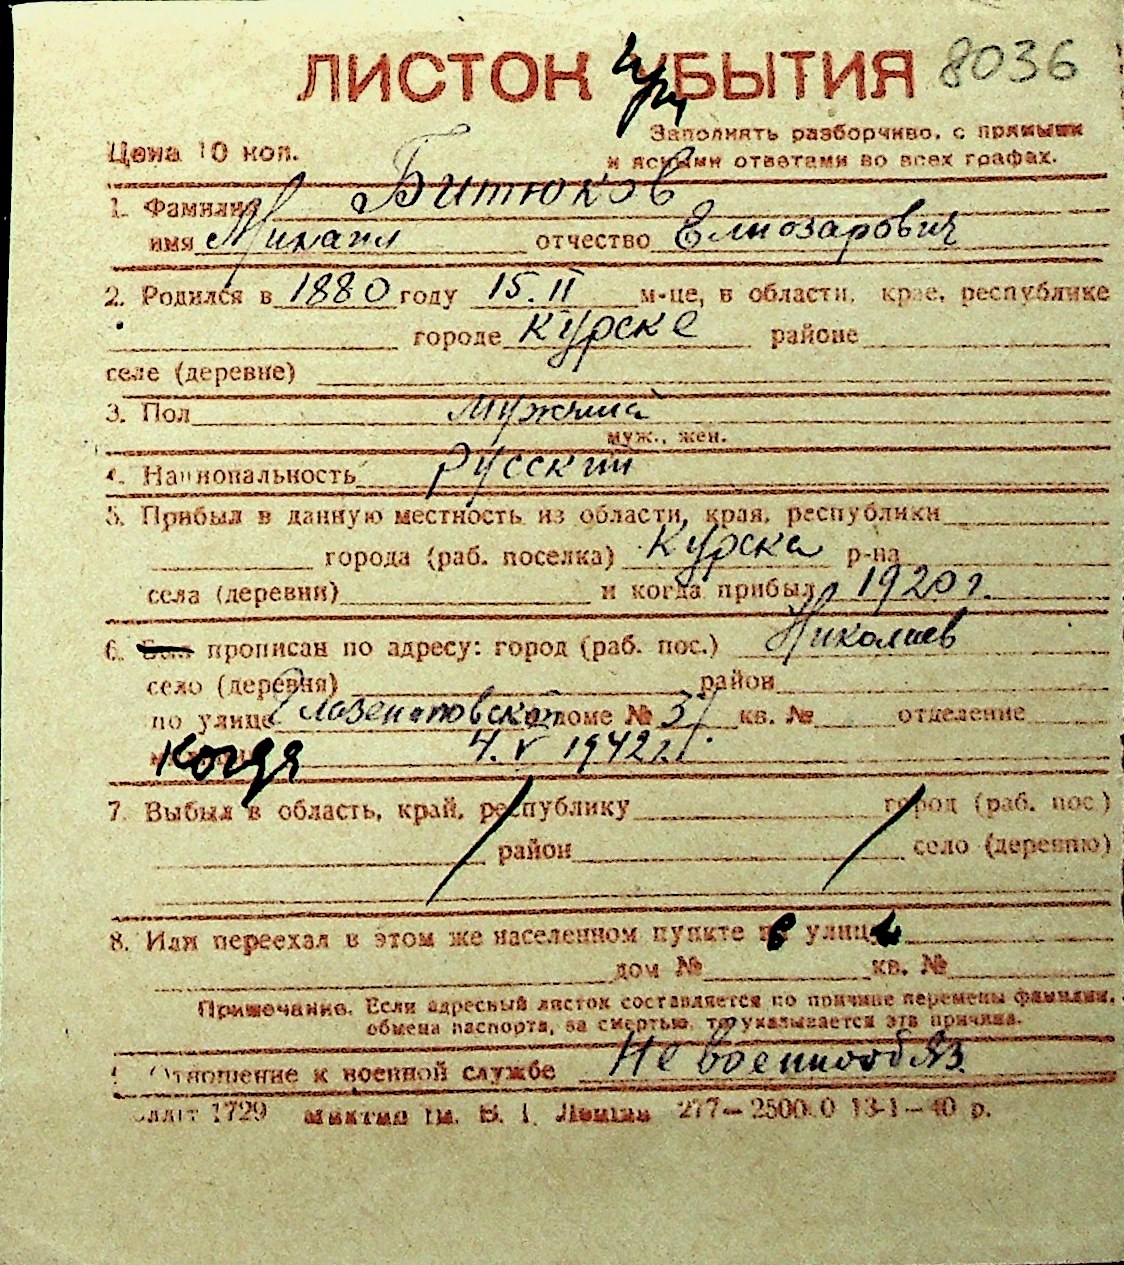 ЛИСТОК УБЫТИЯ 8036
при
Цена 10 коп.
Заполнять разборчиво, с прямыми
и ясными ответами во всех графах.
1. Фамилия Битюков
имя Михаил отчество Елиозарович
2. Родился в 1880 году 15.II м-це, в области, крае, республике
городе Курске районе
селе (деревне)
3. Пол мужчина
муж., жен.
4. Национальность русский
5. Прибыл в данную местность из области, края, республики
города (раб. поселка) Курска р-на
села (деревни) и когда прибыл 1920 г.
6. Был прописан по адресу: город (раб. пос.) Николаев
село (деревня) район
по улице дом № 37 кв. № отделение
когда 4. V 1942 г.
7. Выбыл в область, край, республику город (раб. пос.)
район село (деревню)
8. Или переехал в этом же населенном пункте в улице
дом № кв. №
Примечание. Если адресный листок составляется по причине перемены фамилии,
обмена паспорта, за смертью, то указывается эта причина.
Отношение к военной службе Не военнообяз.
1729 им. В. І. Леніна 277—250000 13-1—40 р.